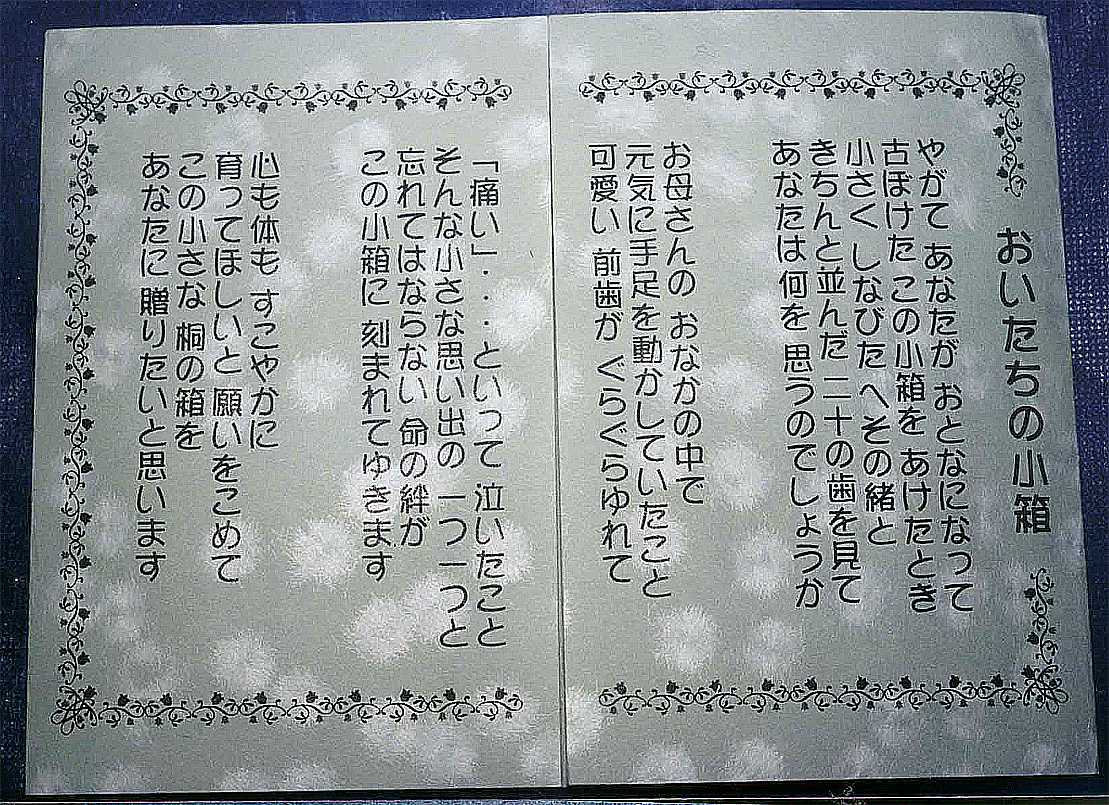 おいたちの小箱
やがて あなたが おとなになって
古ぼけた この小箱を あけたとき
小さく しなびた へその緒と
きちんと並んだ 二十の歯を見て
あなたは何を 思うのでしょうか
お母さんの おなかの中で
元気に手足を動かしていたこと
可愛い 前歯が ぐらぐらゆれて
「痛い」・・といって 泣いたこと
そんな小さな思い出の 一つ一つと
忘れてはならない 命の絆が
この小箱に 刻まれてゆきます
心も体も すこやかに
育ってほしいと 願いをこめて
この小さな 桐の箱を
あなたに 贈りたいと思います